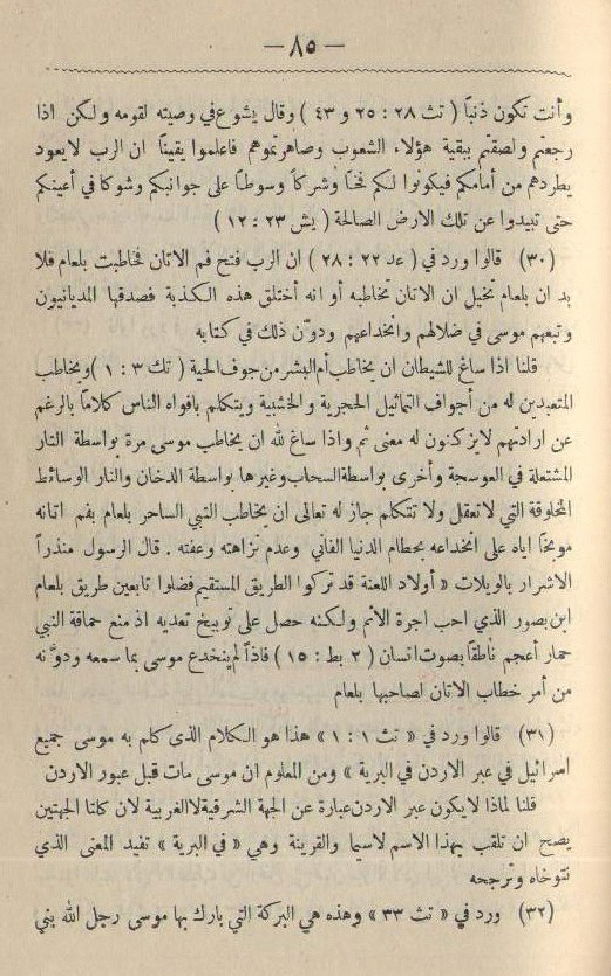 — ٨٥ —
وأنت تكون ذنباً ( تث ٢٨ : ٢٥ و ٤٣ ) وقال يشوع في وصيته لقومه ولكن اذا
رجعتم ولصقتم ببقية هؤلاء الشعوب وصاهرتموهم فاعلموا يقيناً ان الرب لا يعود
يطردهم من أمامكم فيكونوا لكم فخاً وشركاً وسوطاً على جوانبكم وشوكا في أعينكم
حتى تبيدوا عن تلك الارض الصالحة ( يش ٢٣ : ١٢ )
(٣٠) قالوا ورد في ( عد ٢٢ : ٢٨ ) ان الرب فتح فم الاتان فخاطبت بلعام فلا
بد ان بلعام تخيل ان الاتان تخاطبه أو انه أختلق هذه الكذبة فصدقها المديانيون
وتبعهم موسى في ضلالهم وانخداعهم ودوّن ذلك في كتابه
قلنا اذا ساغ للشيطان ان يخاطب أم البشر من جوف الحية ( تك ٣ : ١ ) ويخاطب
المتعبدين له من أجواف التماثيل الحجرية والخشبية ويتكلم بافواه الناس كلاماً بالرغم
عن ارادتهم لا يزكنون له معنى ثم واذا ساغ لله ان يخاطب موسى مرة بواسطة النار
المشتعلة في العوسجة وأخرى بواسطة السحاب وغيرها بواسطة الدخان والنار الوسائط
المخلوقة التي لا تعقل ولا تتكلم جاز له تعالى ان يخاطب النبي الساحر بلعام بفم اتانه
موبخاً اياه على انخداعه بحطام الدنيا الفاني وعدم نزاهته وعفته . قال الرسول منذراً
الاشرار بالويلات « أولاد اللعنة قد تركوا الطريق المستقيم فضلوا تابعين طريق بلعام
ابن بصور الذي احب اجرة الاثم ولكنه حصل على توبيخ تعديه اذ منع حماقة النبي
حمار أعجم ناطقاً بصوت انسان ( ٢ بط : ١٥ ) فاذاً لم ينخدع موسى بما سمعه ودوَّنه
من أمر خطاب الاتان لصاحبها بلعام
(٣١) قالوا ورد في « تث ١ : ١ » هذا هو الكلام الذى كلم به موسى جميع
اسرائيل في عبر الاردن في البرية » ومن المعلوم ان موسى مات قبل عبور الاردن
قلنا لماذا لا يكون عبر الاردن عبارة عن الجهة الشرقية لا الغربية لان كلتا الجهتين
يصح ان تلقب بهذا الاسم لاسيما والقرينة وهي « في البرية » تفيد المعنى الذي
نتوخاه وترجحه
(٣٢) ورد في « تث ٣٣ » وهذه هي البركة التي بارك بها موسى رجل الله بني